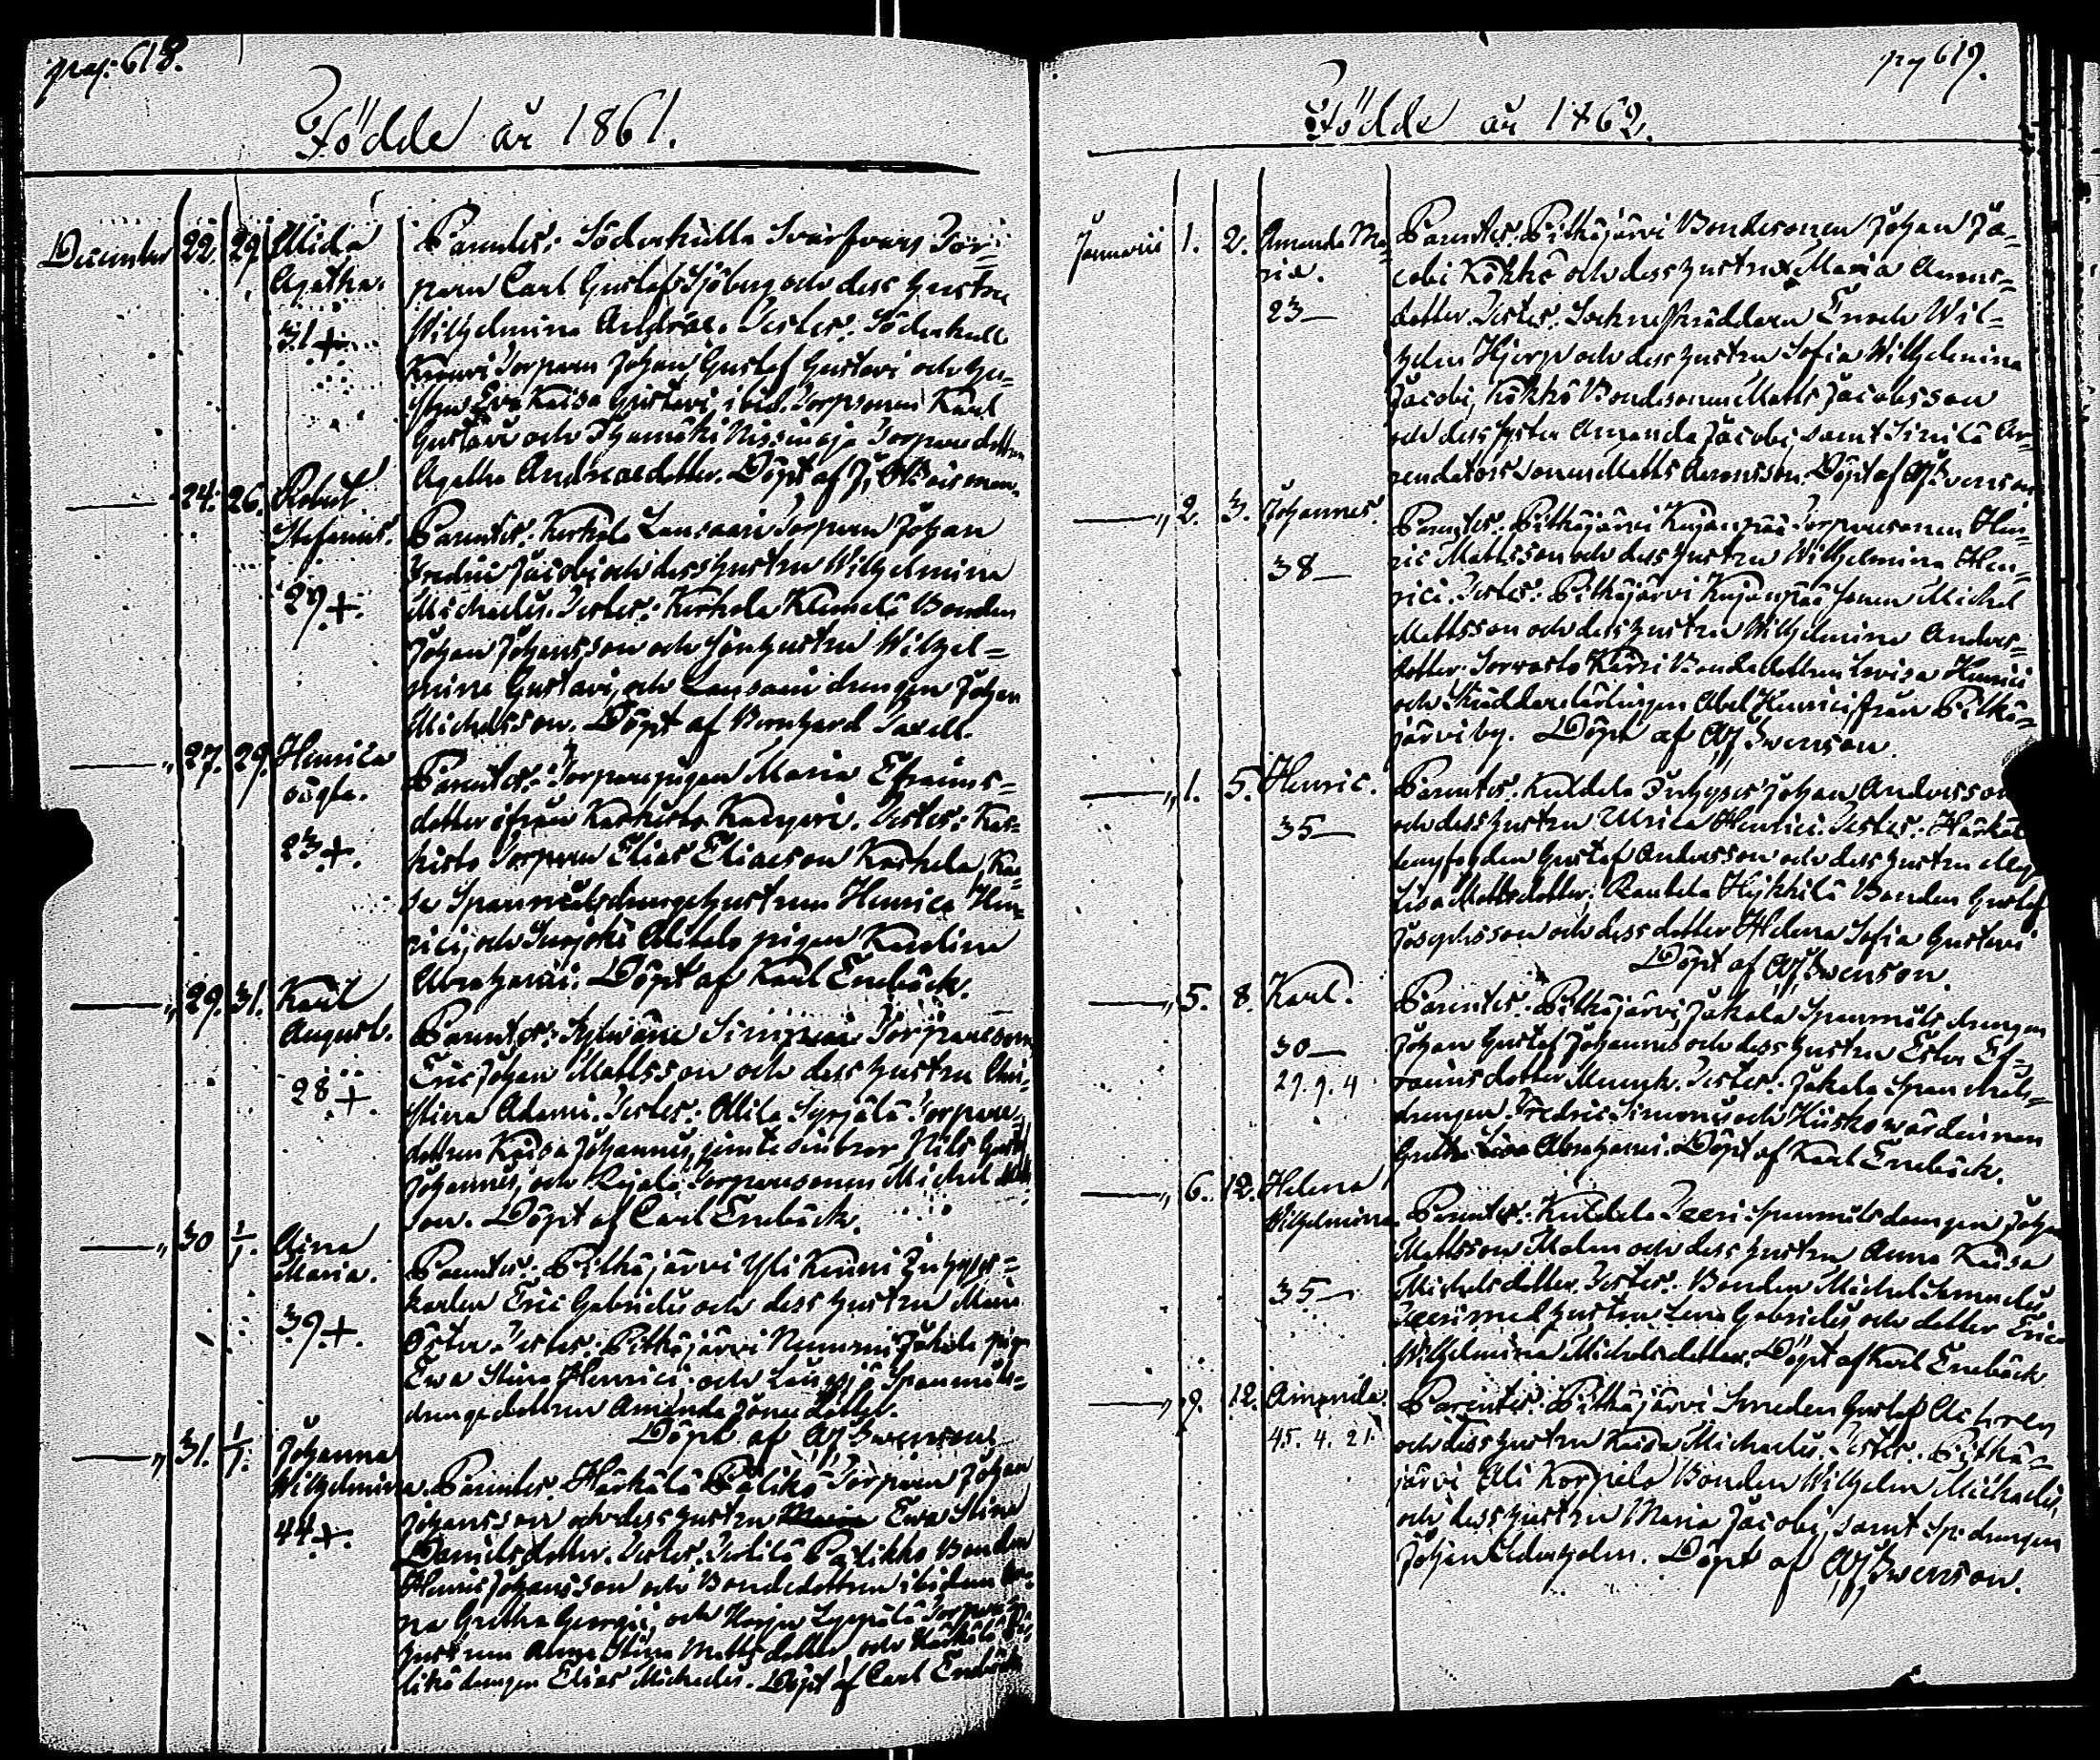 pag: 618.
Födde år 1861.
December 22. 29. Alida Agatha. 31+
Parentes: Söderkulla Torparen Carl Gustaf Sjöberg och dess hustru
Wilhelmina Andræe. Testes: Söderkulla
Knuuri Torparen Johan Gustaf Gustavi och hustrun
Eva Kaisa Gustavi, ibid. Torpsonen Karl
Gustavi och Torparedottern
Agatha Andreaedotter. Döpt af J.
— 24. 26. Robert Stefanus. 29+.
Parentes: Kerkola Lansaari Torparen Johan
Fredric Jacobi och dess hustru Wilhelmina
Michaelis. Testes: Kerkola Klemelä Bonden
Johan Johansson och hustru Wilhel=
mina Gustavi, och Lansaari drengen Johan
Michelsson. Döpt af Bernhard Taxell.
— 27. 29. Henrica 23+.
Parentes: Torparepigan Maria Efraims=
dotter ifrån Karkisto. Testes: Kar=
kisto Torparen Elias Eliaeson Karhela,
Spannmålsdrengehustrun Henrica Hen=
rici, och pigan Karolina
Abrahami. Döpt af Karl Enebäck.
— 29. 31. Karl August. 28+.
Parentes: Torparesonen
Eric Johan Mattsson och dess hustru Chri=
stina Adami. Testes: Torpare=
dottren Kaisa Johannis, jemte sin bror Nils
Johannis, och Torparesonen Michel
son. Döpt af Carl Enebäck.
— 30 1/1. Aina Maria. 39+.
Parentes: Pitkäjärvi Yli Knuuri Inhyses=
karlen Eric Gabrielis och dess hustru Maria
Öster. Testes: Pitkäjärvi Nummi Jakola piga
Ewa Stina Henrici och Spanmåls=
drengedottren Amanda Jonædotter.
Döpt af AJ Swenson
— 31. 1/1. Johanna Wilhelmina. 44+.
Parentes. Härkälä Pälikö Torparen Johan
Johansson och dess hustru Ewa Stina
Danielsdotter. Testes. Pälikkö Bonden
Henric Johansson och Bondedottren ibidem
na Gretha Georgii, och Torpare
hustrun Anna Stina Mattsdotter, och Härkälä
likö drengen Elias Michaelis. Döpt af Carl Enebäck
pag 619.
Födde år 1862.
Januarii 1. 2. Amanda Maria. 23—
Parentes: Pitkäjärvi Bondesonen Johan Ja=
cobi Kökkö och dess hustru Maria Amos=
dotter. Testes: Sockneskräddaren Enoch Wil=
helm Hjerp och dess hustru Sofia Wilhelmina
Jacobi, Kökkö Bondesonen Matts Jacobsson
och dess syster Amanda Jacobi, samt Sinilä Ar=
rendators sonen Matts Aronsson. Döpt af AJ Swenson
— 2. 3. Johannes. 38—
Parentes: Pitkäjärvi Kujanpää Torparesonen Hen=
ric Mattsson och dess hustru Wilhelmina Hen=
rici. Testes: Pitkäjärvi Kujanpää sonen Michel
Mattsson och dess hustru Wilhelmina Anders=
dotter. Sorvasto Bondedottren Lovisa Henrici
och Skräddarelärlingen Abel Henrici, från Pitkä=
järvi by. Döpt af AJ Swenson.
— 1. 5. Henric. 35—
Parentes: Kuldela Inhyses Johan Andersson
och dess hustru Ulrica Henrici. Testes: Härkälä
Gustaf Andersson och dess hustru
Lisa Mattsdotter, Rautela Heikkilä Bonden Gustaf
Josephsson och dess dotter Helena Sofia Gustavi
Döpt af AJ Swenson.
— 5. 8. Karl. 30— 29. 9. 4
Parentes: Pitkäjärvi Jakola Spanmålsdrengen
Johan Gustaf Johannis och dess hustru Ester Ef=
raimsdotter Munck. Testes: Jakola Spanmåls=
drengen Fredric Simonis och Hiisko värdinnan
Gretha Lisa Abrahami. Döpt af Karl Enebäck.
— 6. 12. Helena Wilhelmina. 35—
Parentes: Kuldela Teeri Spanmålsdrengen Johan
Mattsson Malm och dess hustru Anna Kaisa
Michelsdotter. Testes: Bonden Michel Samuelis
Teeri med hustru Lena Gabrielis och dotter Erica
Wilhelmina Michelsdotter. Döpt af Karl Enebäck.
— 9. 12. Amanda. 45. 4. 21.
Parentes: Pitkäjärvi Smeden Gustaf Achrén
och dess hustru Kaisa Michaelis. Testes: Pitkä=
järvi Ali Korpela Bonden Wilhelm Michaelis,
och dess hustru Maria Jacobi, samt Sp. drengen
Johan Cederholm. Döpt af AJ Swenson.